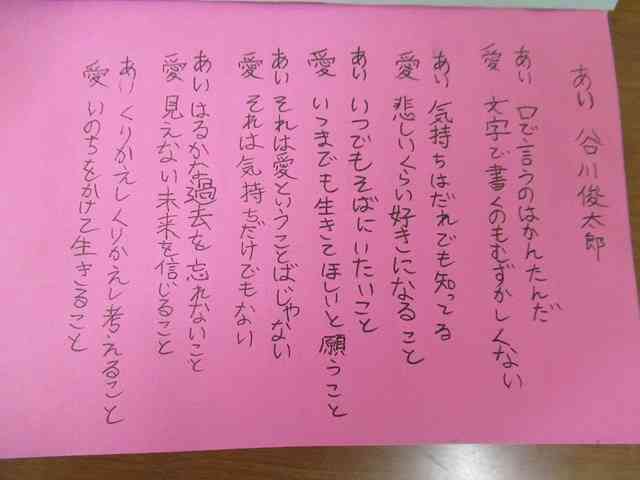 あい 谷川俊太郎
あい 口で言うのはかんたんだ
愛 文字で書くのもむずかしくない
あい 気持ちはだれでも知ってる
愛 悲しいくらい好きになること
あい いつでもそばにいたいこと
愛 いつまでも生きてほしいと願うこと
あい それは愛ということばじゃない
愛 それは気持ちだけでもない
あい はるかな過去を忘れないこと
愛 見えない未来を信じること
あい くりかえしくりかえし考えること
愛 いのちをかけて生きること